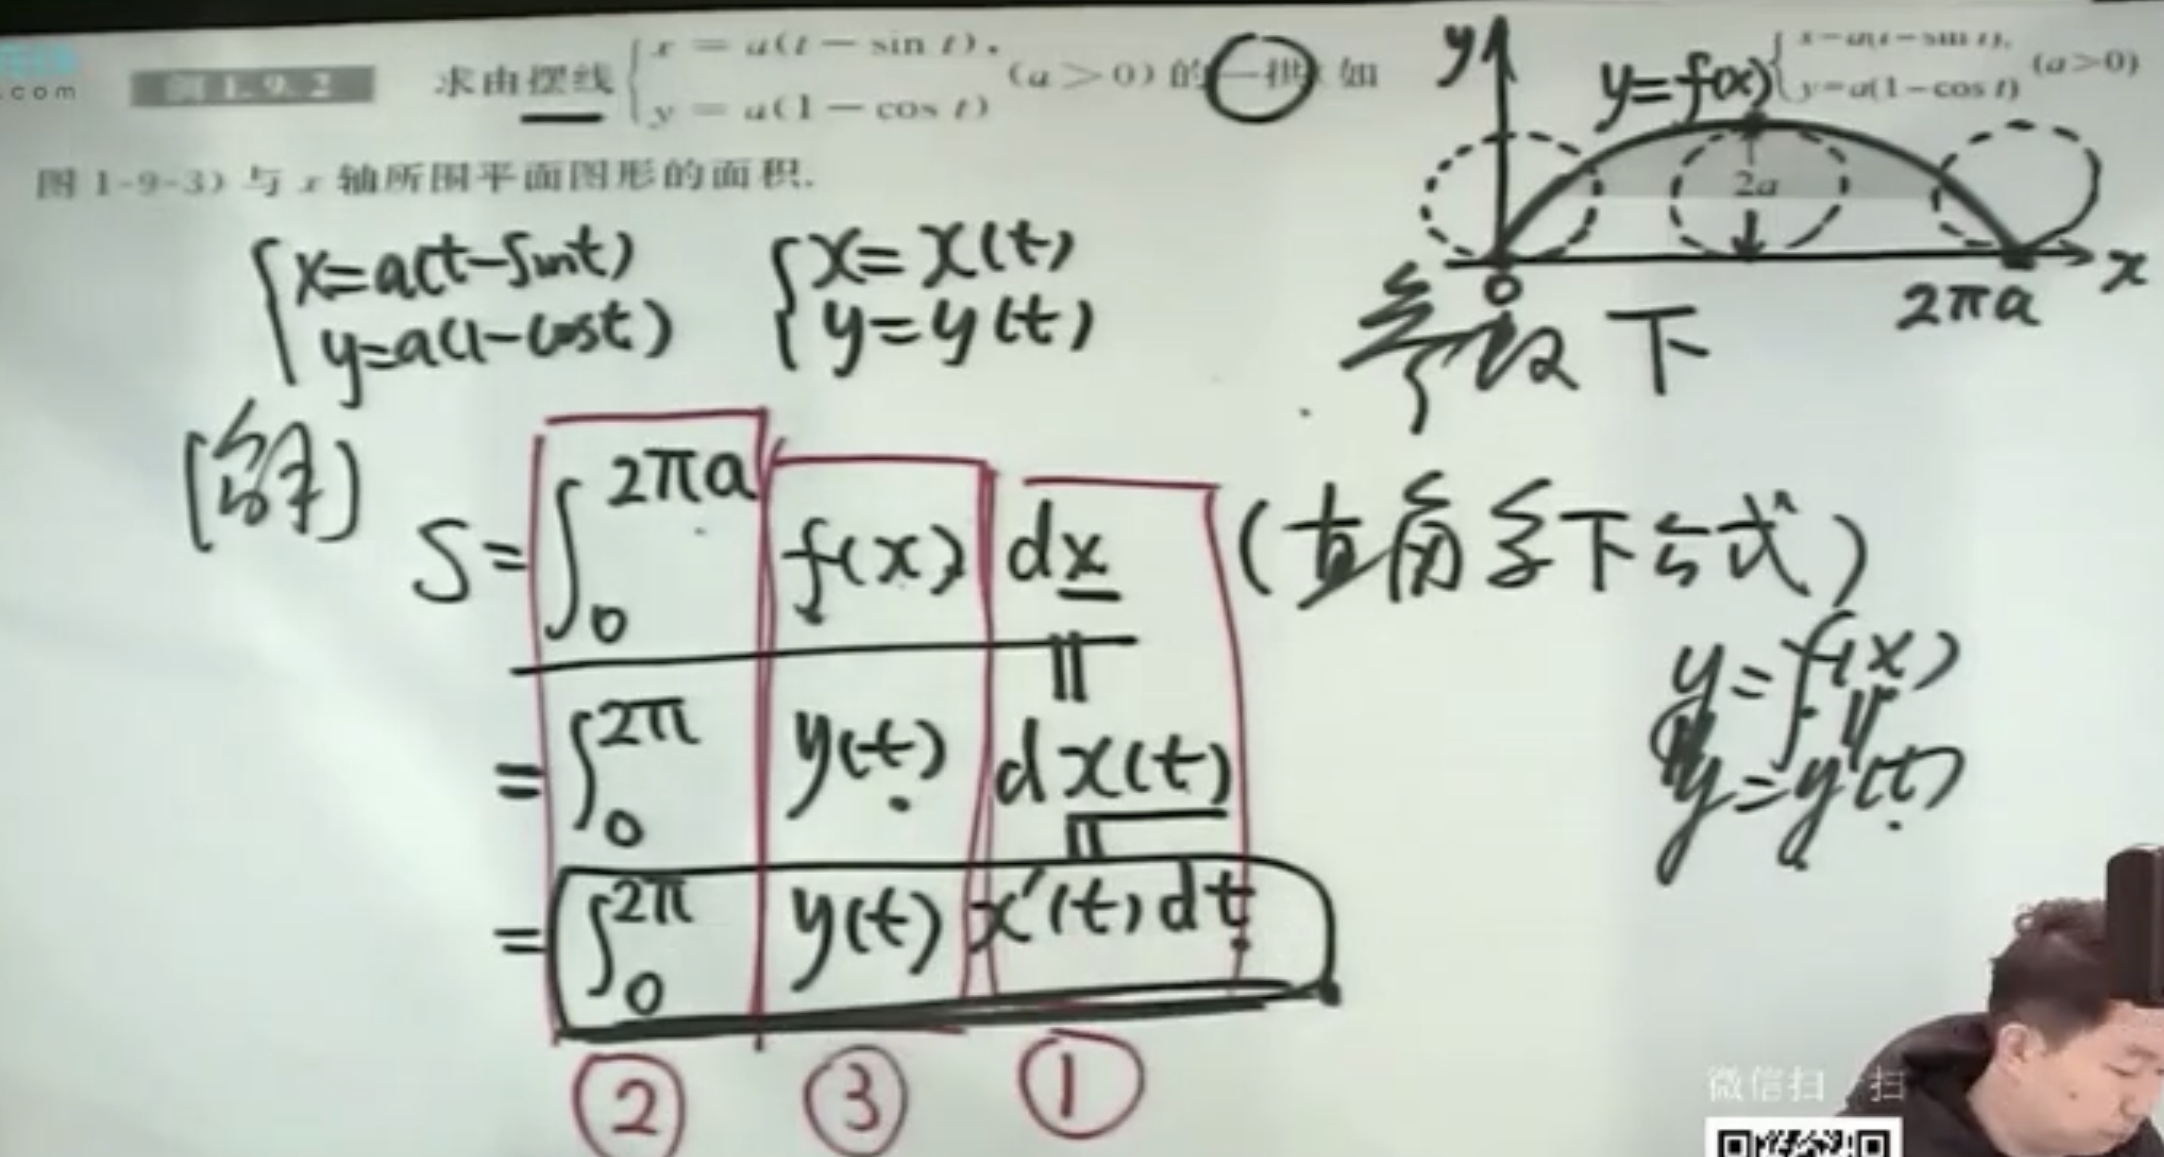 .com
例1.9.2 求由摆线 { x = a(t − sin t), y = a(1 − cos t) (a > 0) 的一拱(如
图1-9-3)与 x 轴所围平面图形的面积.
y
y=f(x)
{ x=a(t−sin t), y=a(1−cos t) (a>0)
2a
0
2πa
x
{ x=a(t−sint)
y=a(1−cost)
{ x=x(t)
y=y(t)
参数下
[解]
S=∫₀^{2πa} f(x) dx (直角系下公式)
=∫₀^{2π} y(t) dx(t)
=∫₀^{2π} y(t) x′(t)dt
y=f(x)
y=y(t)
② ③ ①
微信扫一扫